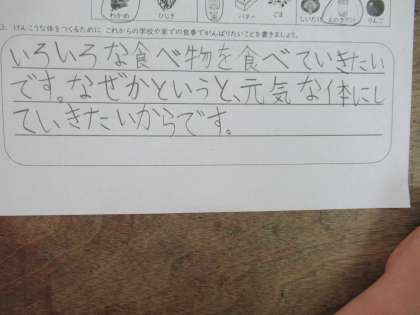 わかめ ひじき バター ごま しいたけ えのきだけ りんご
3. けんこうな体をつくるために これからの学校や家での食事でがんばりたいことを書きましょう。
いろいろな食べ物を食べていきたい
です。なぜかというと、元気な体にし
ていきたいからです。